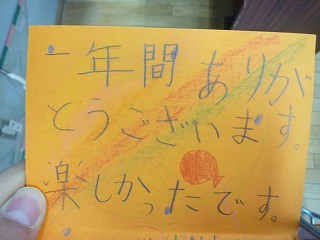 一年間ありが
とうございます。
楽しかったです。